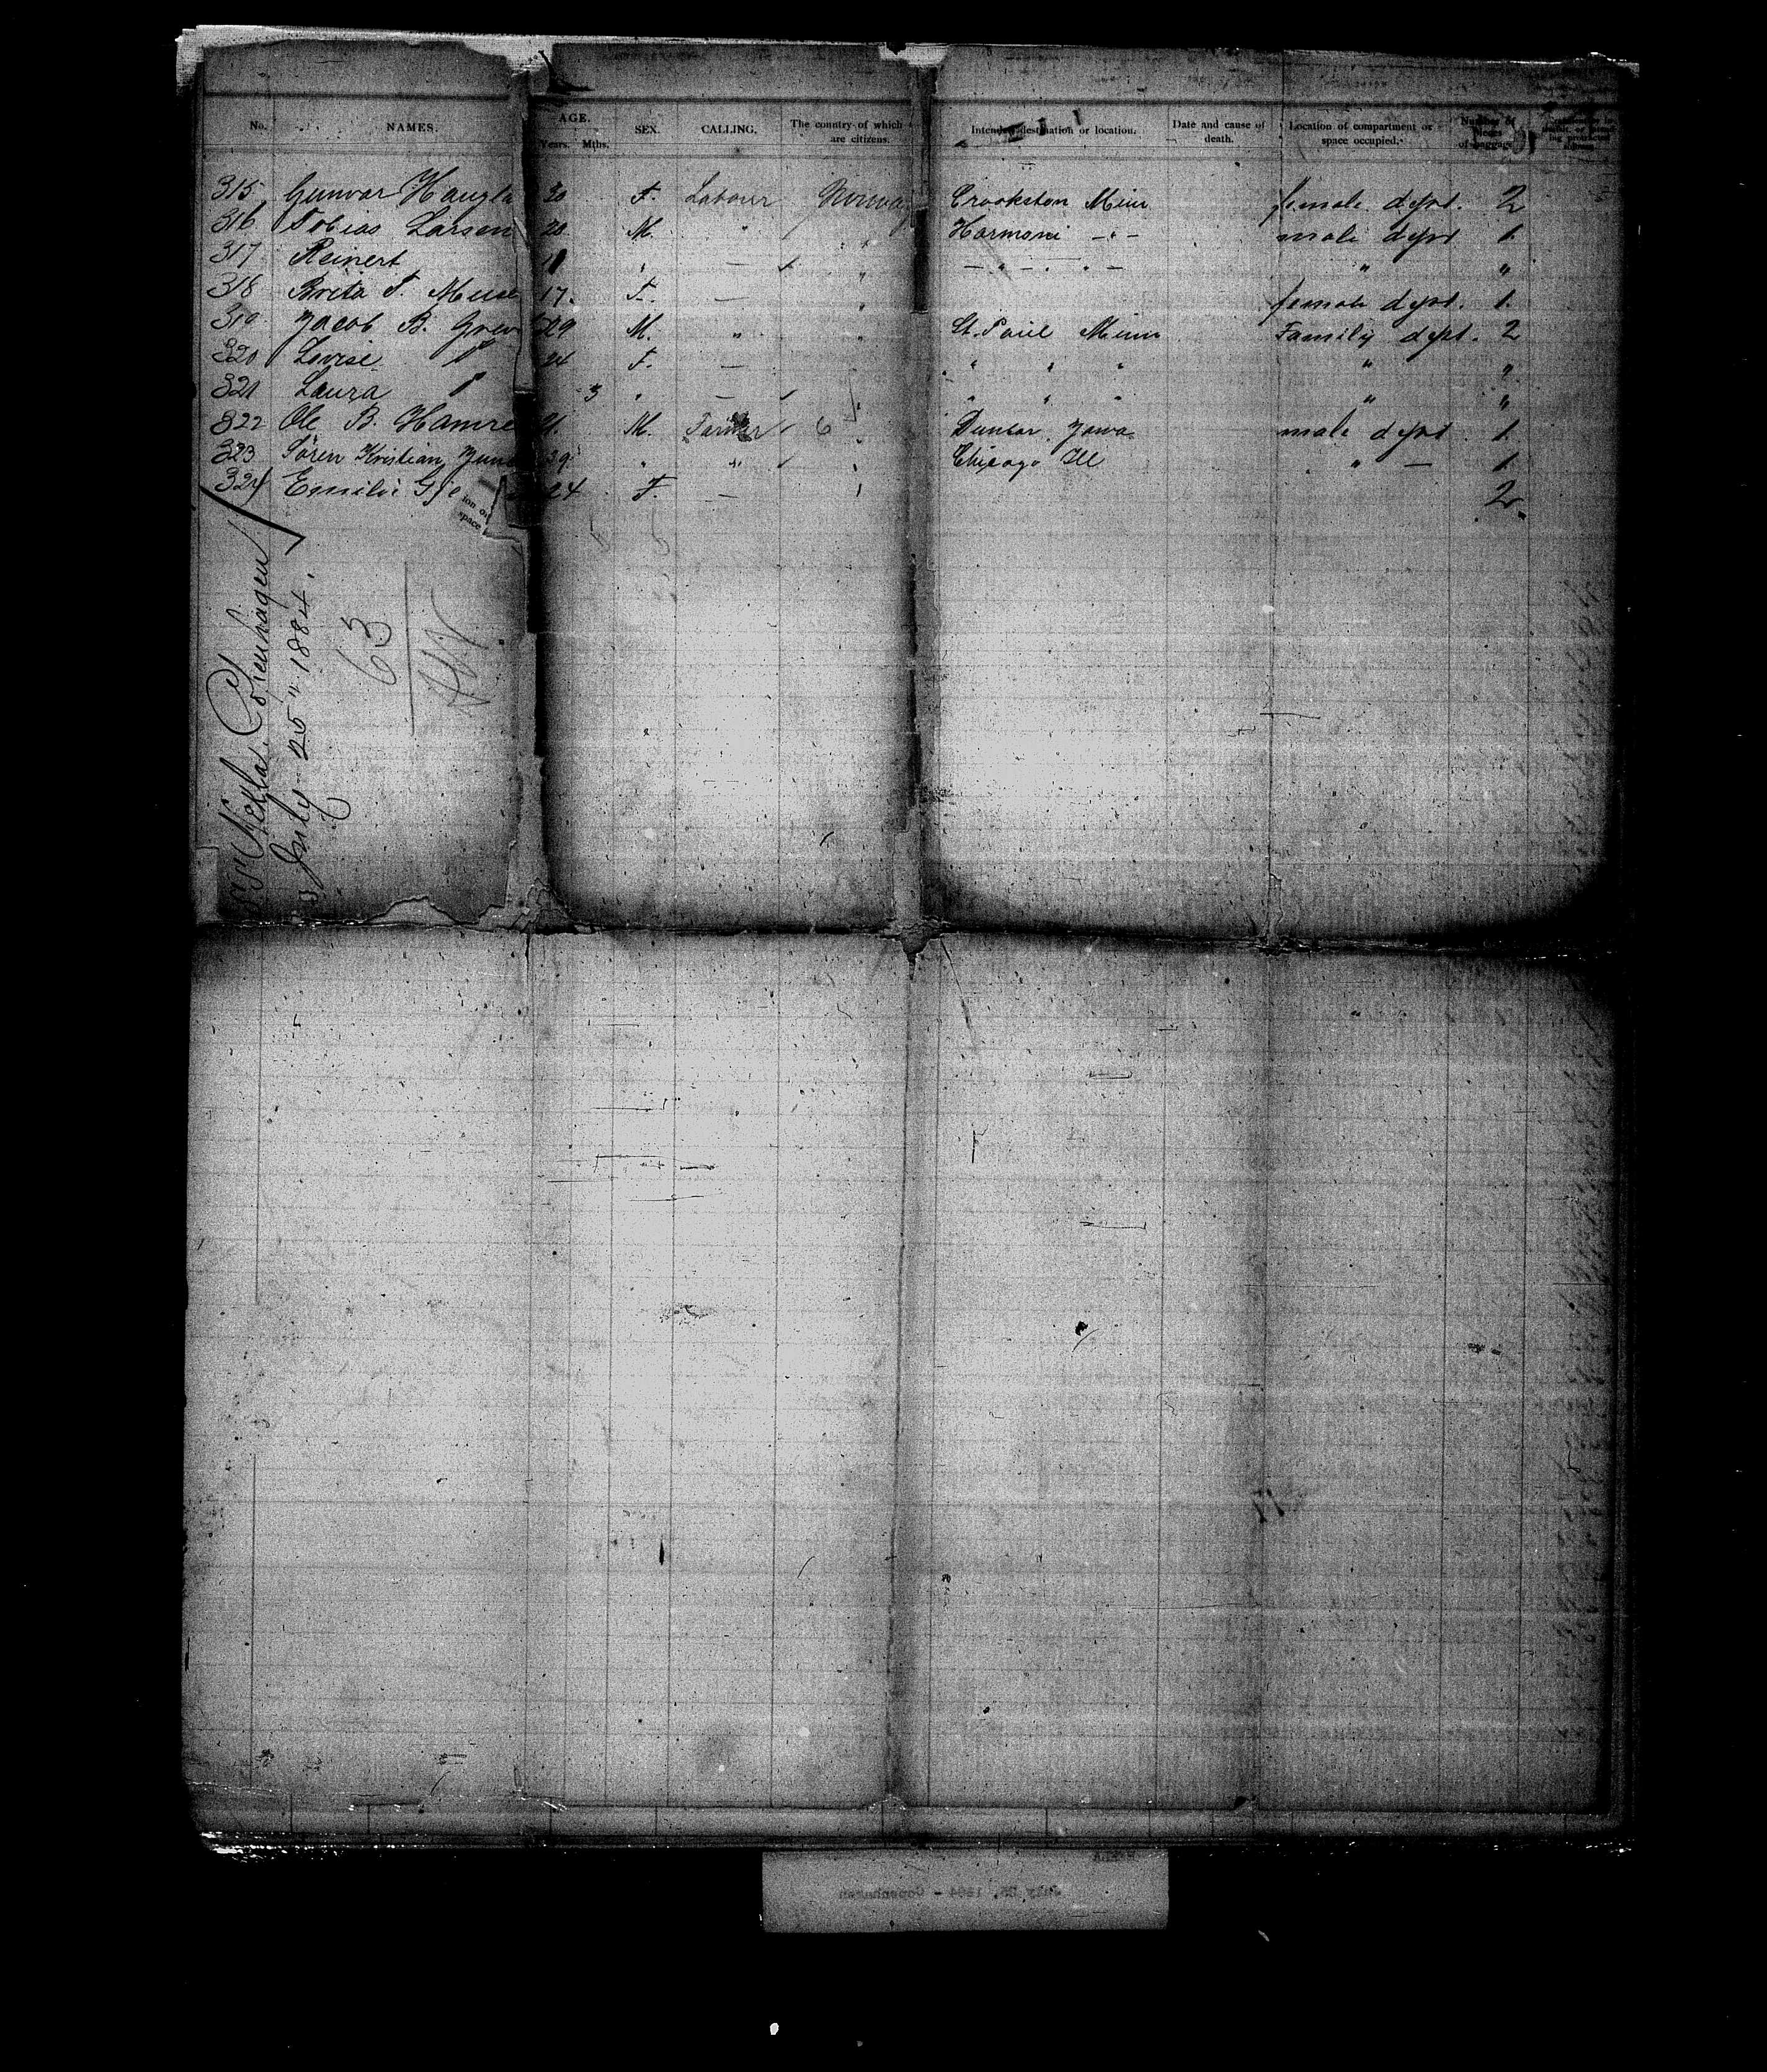 No. NAMES. AGE. Years. Mths. SEX. CALLING. The country of which are citizens. Intended destination or location. Date and cause of death. Location of compartment or space occupied. Number of pieces of baggage
315 Gunvor Haugla 20 F. Labour Norway Crookston Minn female dept. 2
316 Tobias Larson 20 M. " " Harmoni -"- male dept 1
317 Reinert " — " -"- " " - " "
318 Brita T. 17. F. — " female dept. 1
319 Jacob B. 29 M. " " St. Paul Minn Family dept. 2
320 Lovise " 24 F. — " " " " "
321 Laura " 3 " — " " " " " "
322 Ole B. Hamre 21. M. Farmer 6 " Dunbar, Jowa male dept. 1
323 Sören Kristian 39 " " " Chicago Ill " — 1
324 Emilie 24 F. — " 2
ion or
space
SS Hekla, Copenhagen
July 25" 1884.
63
July 25, 1884 - Copenhagen